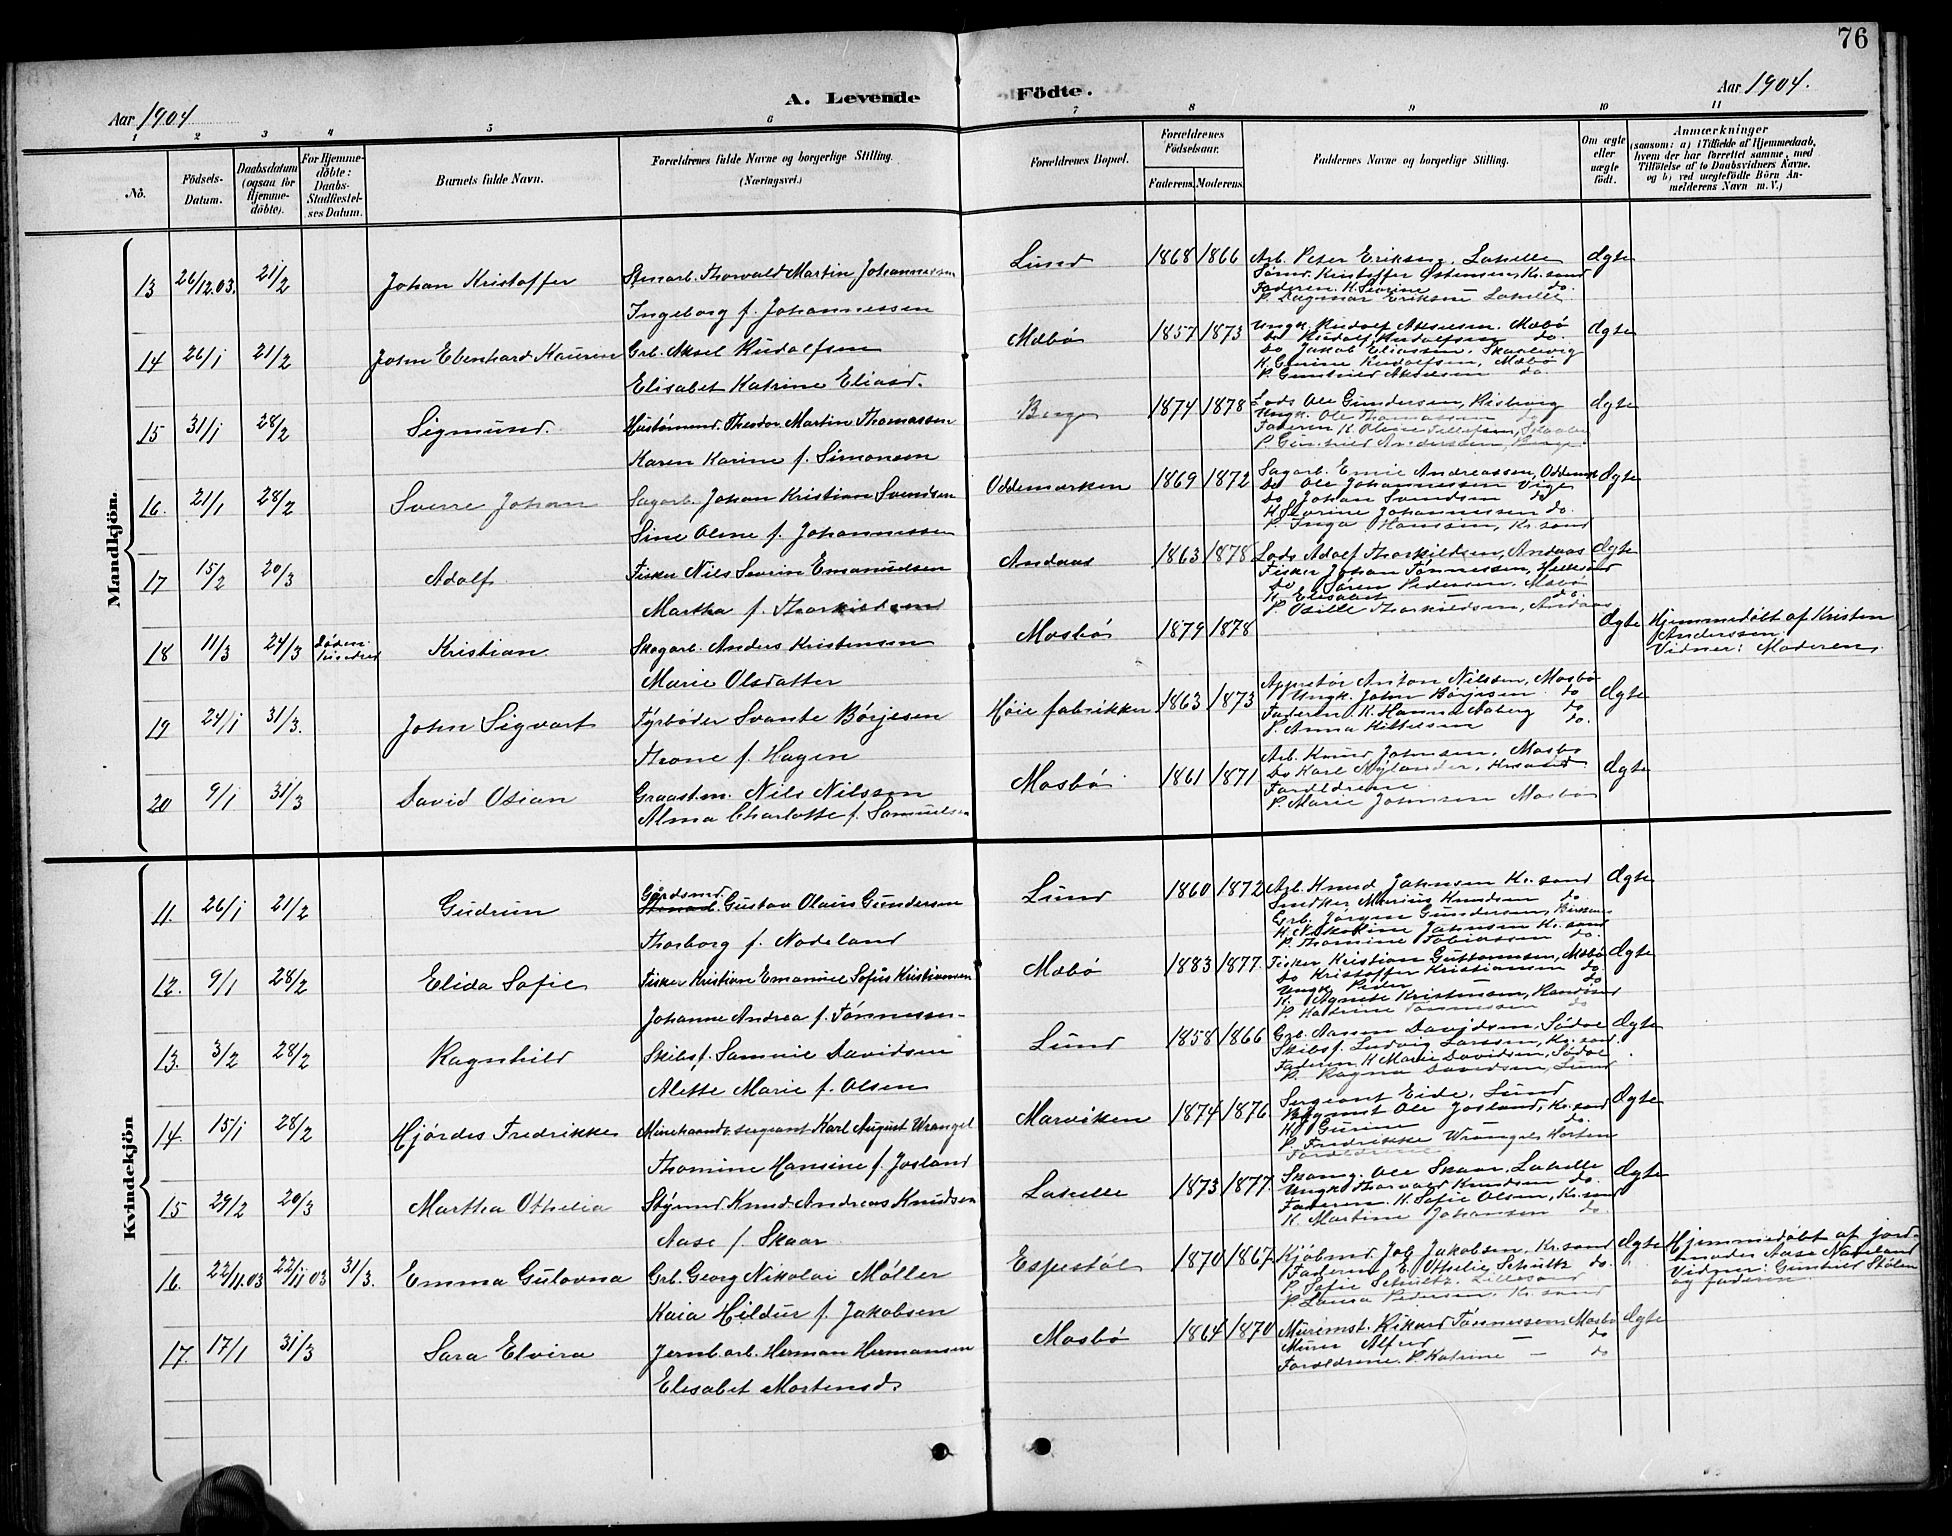 76
Aar 1904
A. Levende
Födte.
Aar 1904.
1 2 3 4 5 6 7 8 9 10 11
No.
Födsels-Datum.
Daabsdatum (ogsaa for Hjemmedöbte).
For Hjemmedöbte: Daabs-Stadfæstelses Datum.
Barnets fulde Navn.
Forældrenes fulde Navne og borgerlige Stilling. (Næringsvei.)
Forældrenes Bopæl.
Forældrenes Födselsaar.
Faderens. Moderens.
Faddernes Navne og borgerlige Stilling.
Om ægte eller uægte födt.
Anmærkninger
(saasom: a) i Tilfælde af Hjemmedaab, hvem der har forrettet samme, med Tilföielse af to Daabsvidners Navne, og b) ved uægtefödte Börn Anmelderens Navn m. V.)
Mandkjön.
13 26/12.03. 21/2 Johan Kristoffer Stenarb. Thorvald Martin Johannessen
Ingeborg f. Johannessen
Lund 1868 1866 Arb. Peter Eriksen, Lahelle
Kristoffer Østensen, Kr.sand
Faderen. K. Severine do.
P. Dagmar Eriksen Lahelle.
Ægte
14 26/1 21/2 John Ebenhard Kauren Grb. Aksel Rudolfsen
Elisabet Katrine Eliasd.
Mæbø 1857 1873 Ungk. Rudolf Akselsen. Mæbø
Do Rudolf Rudolfsen do.
Do Jakob Eliassen, Skarlevig
K. Rudolfsen, Mæbø
P. Gunhild Akselsen do
Ægte
15 31/1 28/2 Sigmund. Husømand. Theodor Martin Thomassen
Karen Karine f. Simonsen
Berge 1874 1878 Lods Ole Gundersen, Risborg
Ungk. Ole Thomassen do
Faderen K. Oline Tellefsen,
P. Gunhild Andersen, Berge.
Ægte
16. 21/1 28/2 Sverre Johan Sagarb. Johan Kristian Svendsen
Sine Oline f. Johannessen
Oddemarken 1869 1872 Sagarb. Emil Andreassen, Oddemk
Do Ole Johannessen Vige
Do Johan Svendsen do
K. Severine Johannessen do.
P. Inga Hansen, Kr.sand
Ægte
17 15/2 20/3 Adolf Fisker Nils Severin Emanuelsen
Martha f. Thorkildsen
Andaas 1863 1878 Lods Adolf Thorkildsen, Andaas
Fisker Johan Tønnessen, Hellesund
Do Søren Pedersen, Mæbø
K. Elisabet do.
P. Osille Thorkildsen, Andaas
Ægte
18 11/3 24/3 Kristian. Skogarb. Anders Kristensen
Marie Olsdatter
Mosbø 1879 1878 Ægte Hjemmedøbt af Kristen
Anderssen.
Vidner: Moderen.
19 24/1 31/3. John Sigvart Fyrbøder Svante Börjesen
Throne f. Hagen
Høie fabrikker 1863 1873 Appretør Anton Nilssen, Mosbø
Ungk. John Börjesen do
Faderen. K. Hanna Aaberg do
P. Anna Kittelsen do.
Ægte
20 9/1 31/3 David Osian Graast.m. Nils Nilssen
Alma Charlotte f. Samuelsen
Mosbø 1861 1871 Arb. Knud Johnsen, Mosbø
Do Karl Nylander, Kr.sand
Forældrene
P. Marie Johnsen Mosbø
Ægte
Kvindekjön
11. 26/1 21/2 Gudrun Gårdsmd. Gustav Olaus Gundersen
Thorborg f. Nodeland
Lund 1860 1872 Arb. Knud Johnsen Kr.sand
Snedker Marius Knudsen do
Grb. Jørgen Gundersen,
K. Johnsen Kr.sand
P. Thomine Tobiassen do.
Ægte
12. 9/1 28/2 Elida Sofie Fisker Kristian Emanuel Sofus Kristiansen
Johanne Andrea f. Tønnessen
Mæbø 1883 1877. Fisker Kristian Guttormsen, Mæbø
Do Kristoffer Kristiansen do.
Ungk. Peder do
K. Agnete Kristensen, Randøsund
P. Katrine Tønnessen do
Ægte
13. 3/2 28/2 Ragnhild Skibsf. Samuel Davidsen
Alette Marie f. Olsen
Lund 1858 1866 Grb. Davidsen, Sødal
Skibsf. Ludvig Larssen, Kr.sand.
Faderen K. Marie Davidsen, Sødal
P. Ragna Davidsen, Lund
Ægte
14. 15/1 28/2 Hjørdes Fredrikke Minehaandv.sergeant Karl August Wrangel
Thomine Hansine f. Josland
Marviken 1874 1876. Sergeant Eide, Lund
Bygmst. Ole Josland, Kr.sand
K. Gurine do.
P. Fredrikke Wrangel, Horten
Forældrene
Ægte
15 29/2 20/3 Martha Othelia Knud Andreas Knudsen
Aase f. Skaar
Lahelle 1873 1877. Ole Skaar, Lahelle
Ungk. Thorvald Knudsen do.
Faderen. K. Sofie Olsen, Kr.sand
K. Martine Johansen do
Ægte
16. 22/11.03 22/11 03 31/3. Emma Gulovna Grb. Georg Nikolai Møller
Kaia Hildur f. Jakobsen
Espestøl 1870 1867. Kjøbmd. Job Jakobsen, Kr.sand
Faderen E. Othelie Schultz do.
P. Sofie Schultz. Lillesand
P. Laura Pedersen. Kr.sand
Ægte Hjemmedøbt af jordmoder Aase Naveland
Vidner: Gunhild Stølen
og faderen.
17. 17/1 31/3 Sara Elvira Jernb.arb. Herman Hermansen
Elisabet Mortensd.
Mosbø 1864 1870 Murermst. Rikard Tønnessen, Mosbø
Murer Alfred — do
Forældrene. P. Katrine — do
Ægte